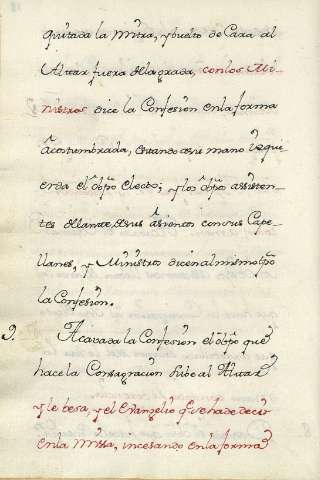 quitada la Mitra, y buelto de Cara al
Altar fuera de la grada, con los Mi-
nistros dice la Confesion en la forma
acostumbrada, estando a su mano izqui-
erda el Obpo Electo; y los Obpos assisten-
tes delante de sus asientos con sus Cape-
llanes, y Ministros dicen al mismo tpo
la Confesion.
9. Acavada la Confesion el Obpo que
hace la Consagracion sube al Altar
y le besa, y el Evangelio que ha de decir
en la Missa, incesando en la forma